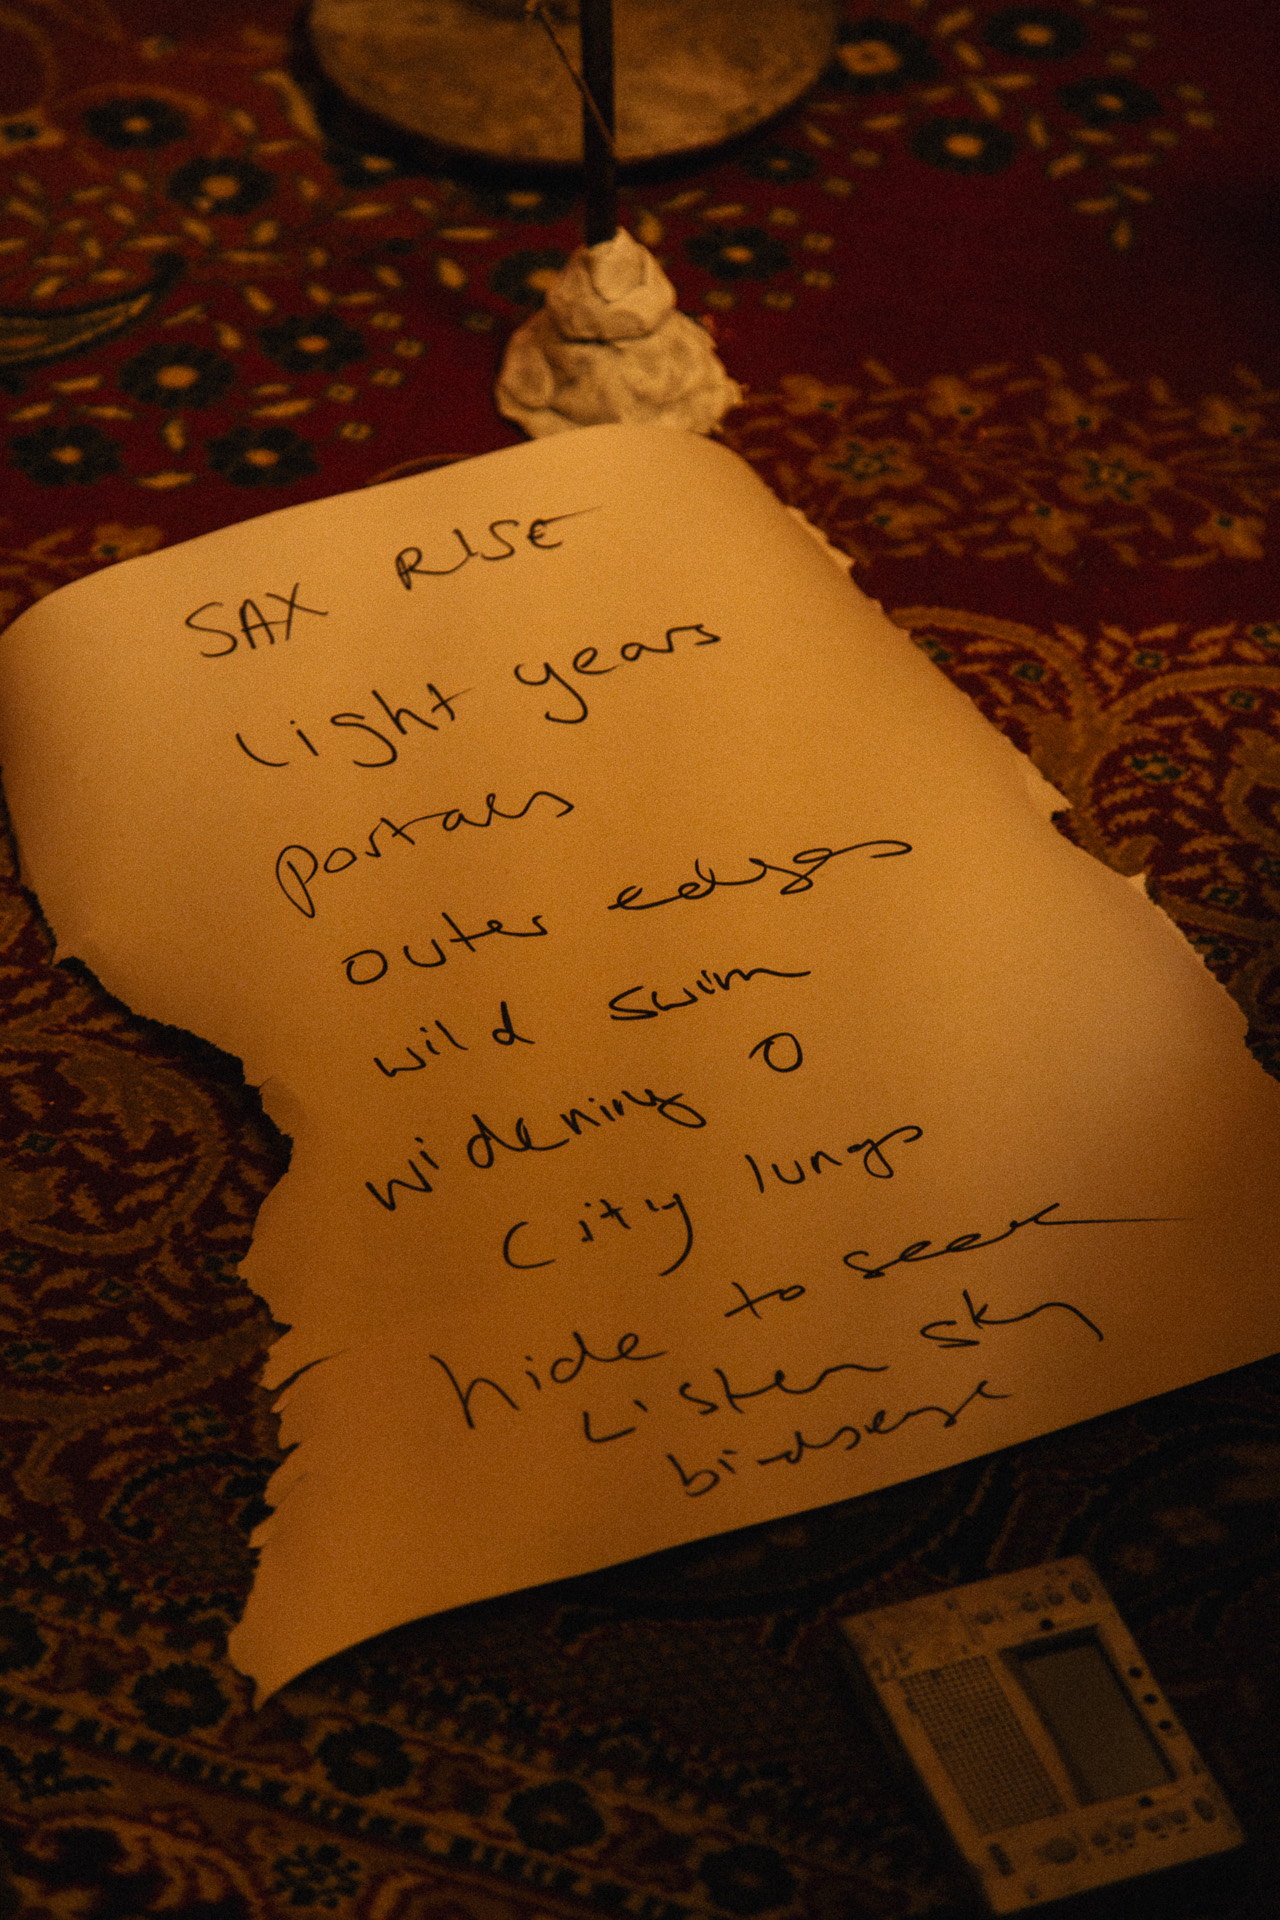 SAX RISE
Light years
portals
outer edges
wild swim
widening O
City lungs
hide to seek
Listen sky